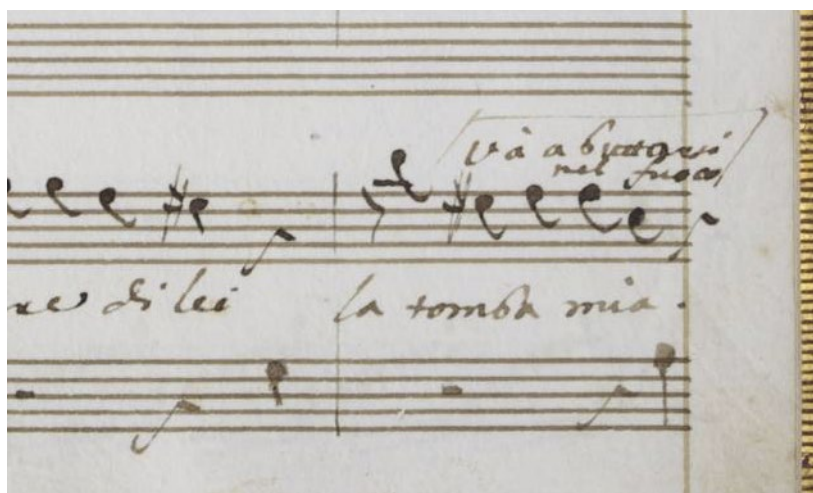 và a buttarsi
nel fuoco
re di lei la tomba mia.